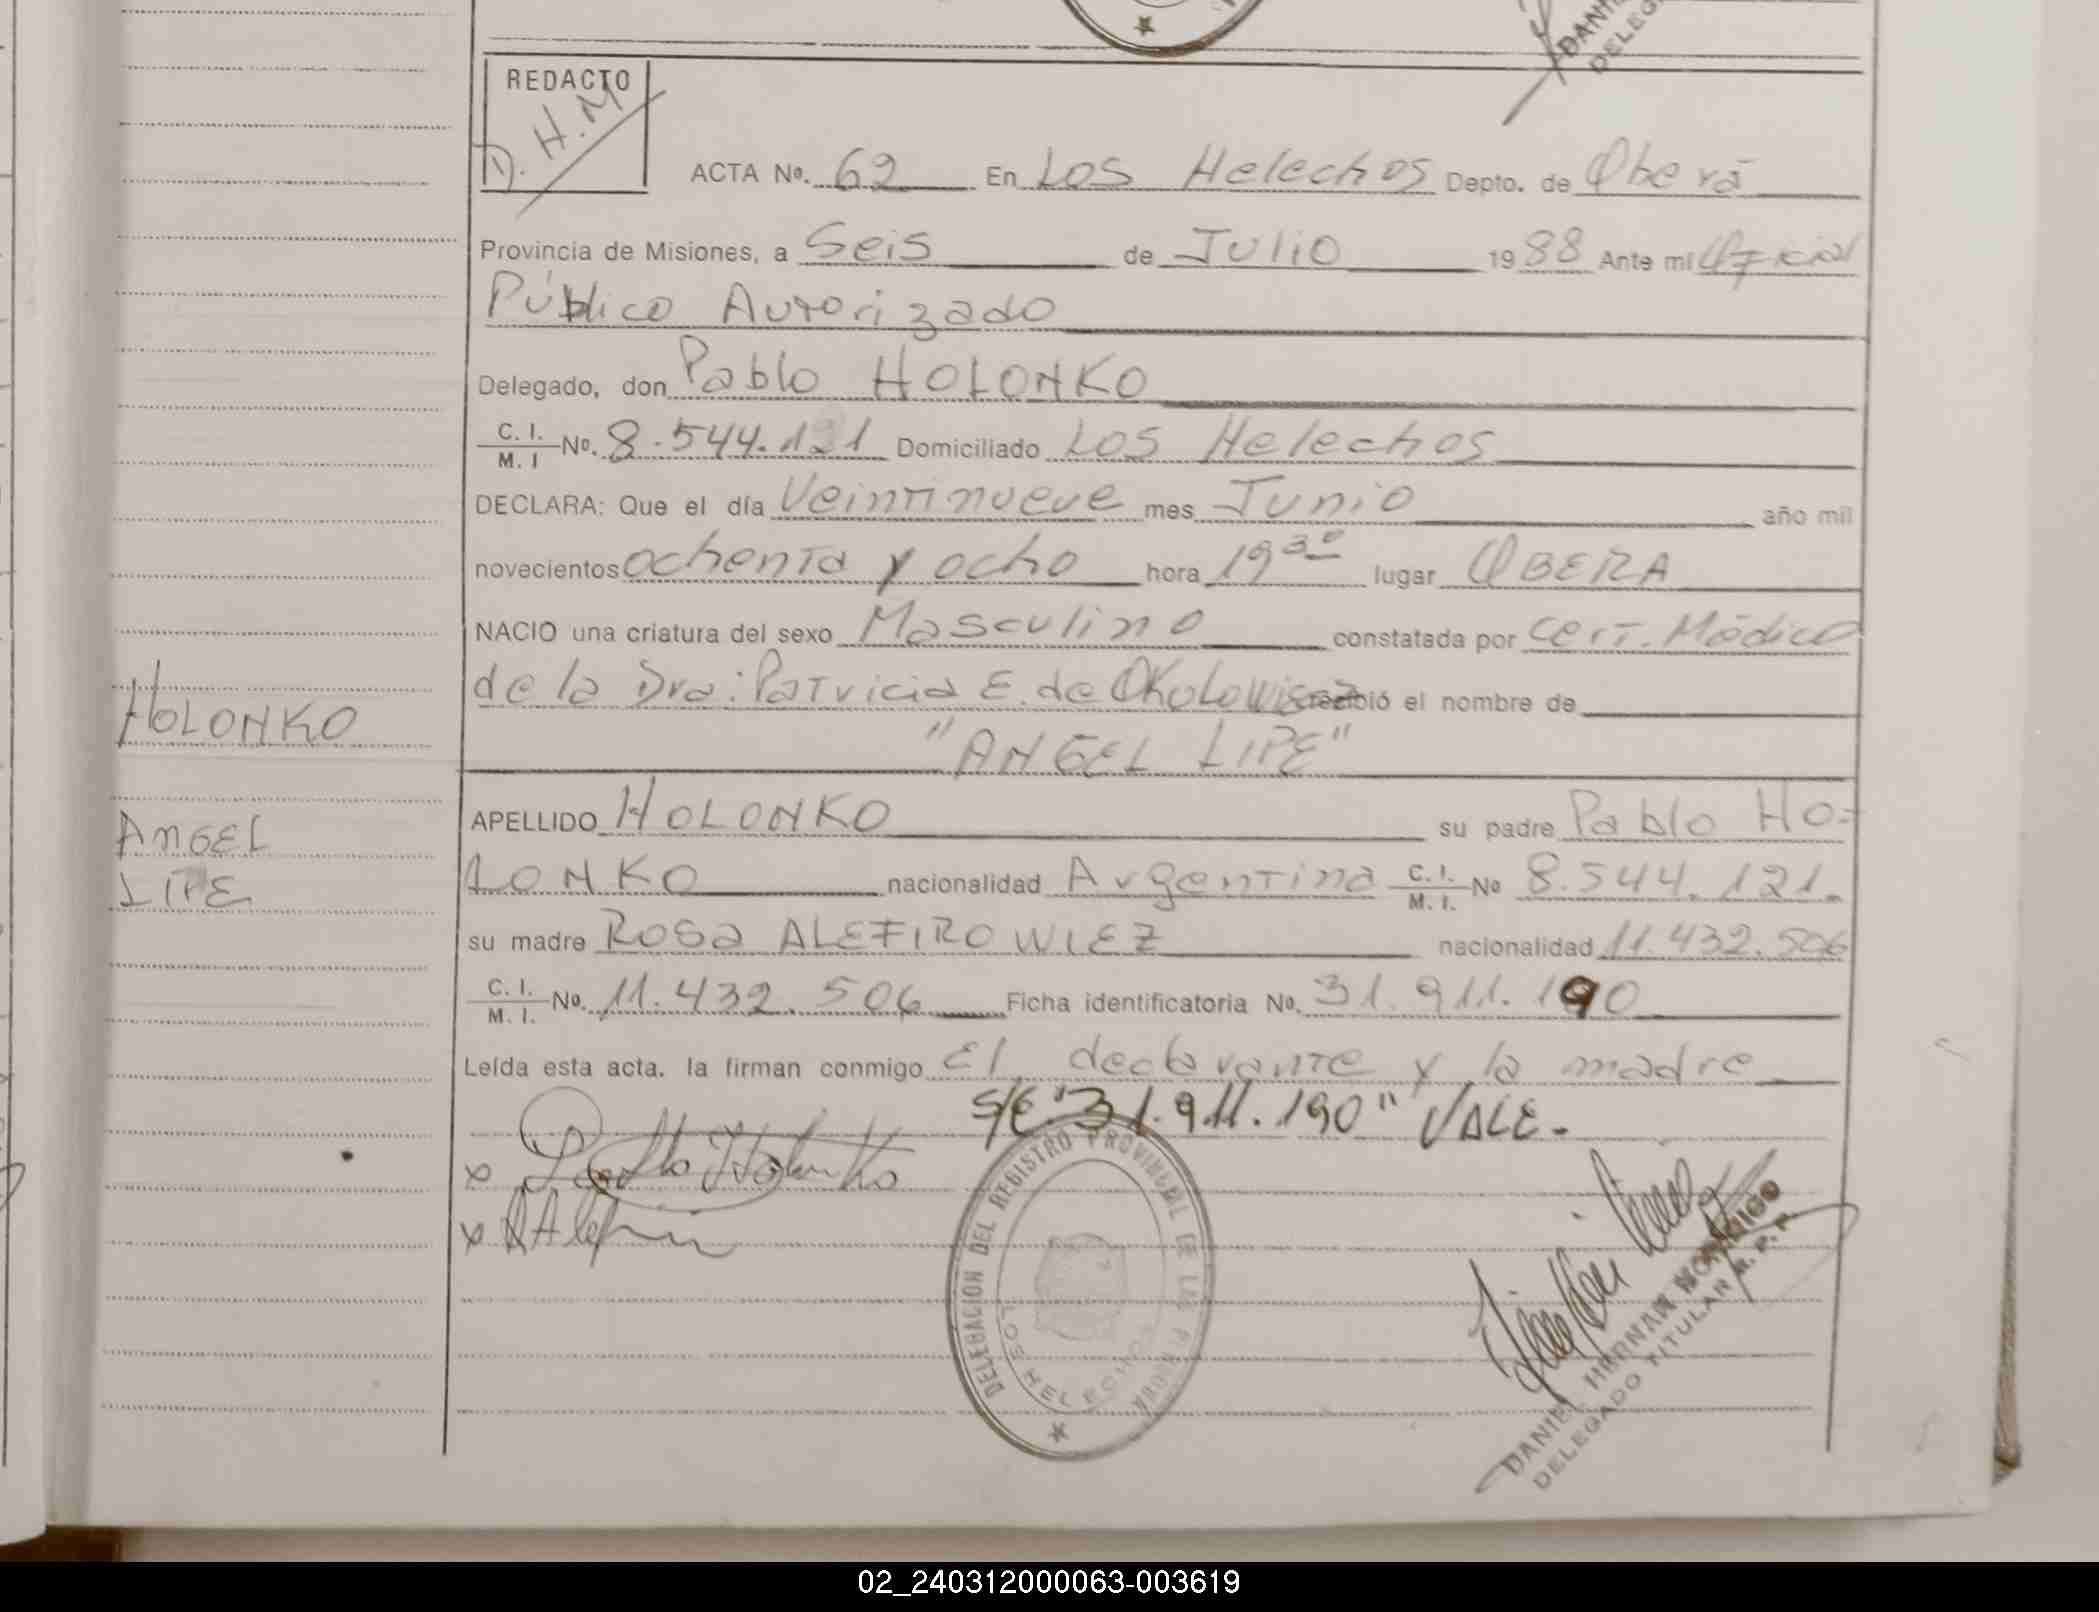 DANIE
DELEG
REDACTO
D. H. M
ACTA Nº. 62 En Los Helechos Depto. de Oberá
Provincia de Misiones, a Seis de Julio 1988 Ante mi Oficial
Público Autorizado
Delegado, don Pablo HOLONKO
C. I. / M. I Nº. 8.544.121 Domiciliado Los Helechos
DECLARA: Que el día Veintinueve mes Junio año mil
novecientos ochenta y ocho hora 19 30 lugar OBERA
NACIO una criatura del sexo Masculino constatada por Cert. Médico
de la Dra: Patricia E. de Okolowicz recibió el nombre de
"ANGEL LIPE"
HOLONKO
ANGEL
LIPE
APELLIDO HOLONKO su padre Pablo HO-
LONKO nacionalidad Argentina C. I. / M. I. Nº 8.544.121.
su madre Rosa ALEFIROWIEZ nacionalidad 11.432.506
C. I. / M. I. Nº. 11.432.506 Ficha identificatoria No. 31.911.190
Leída esta acta. la firman conmigo El declarante y la madre
S/E. "31.911.190" VALE.
x Pablo Holonko
x RAlefi
DELEGACION DEL REGISTRO PROVINCIAL DE LAS PERSONAS
LOS HELECHOS
DANIEL HERNAN
DELEGADO TITULAR R. P. P.
02_240312000063-003619